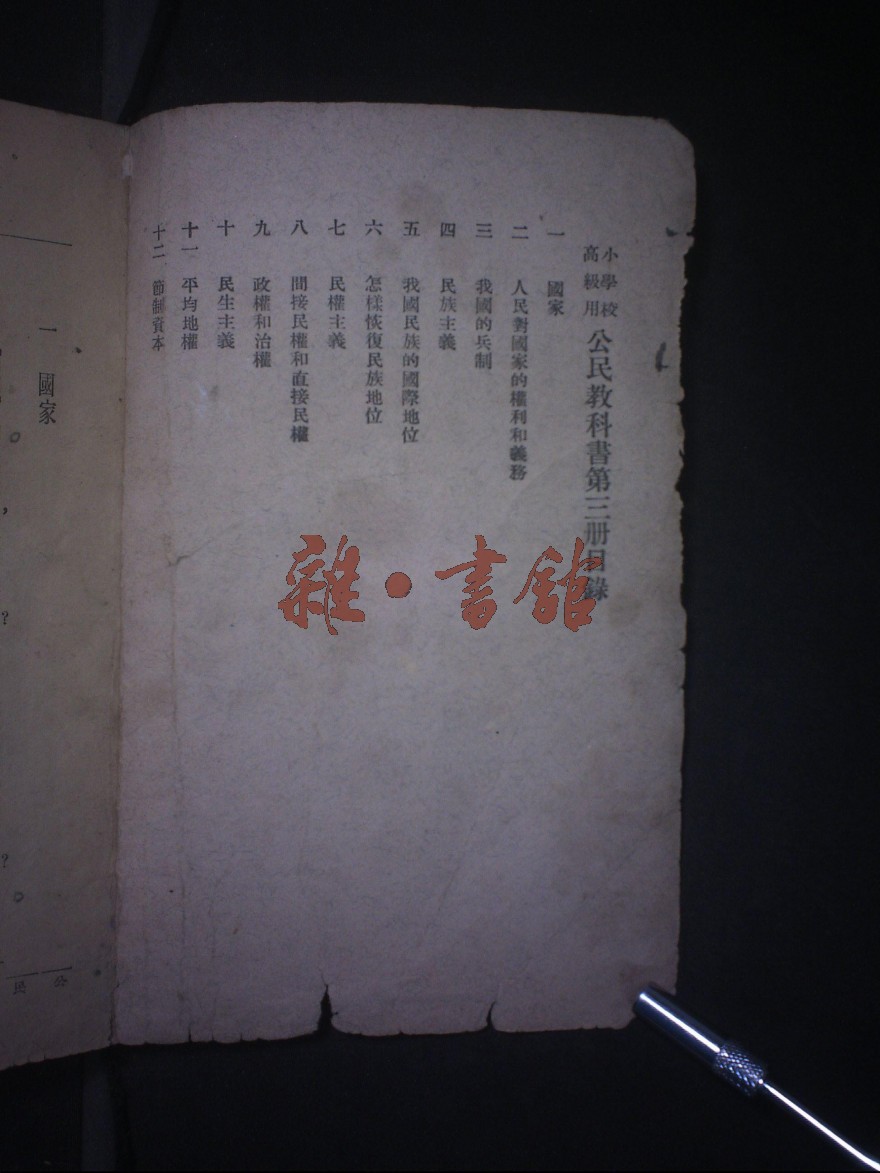 小學校
高級用
公民教科書第三册目錄
一 國家
二 人民對國家的權利和義務
三 我國的兵制
四 民族主義
五 我國民族的國際地位
六 怎樣恢復民族地位
七 民權主義
八 間接民權和直接民權
九 政權和治權
十 民生主義
十一 平均地權
十二 節制資本
一 國家
雜·書館